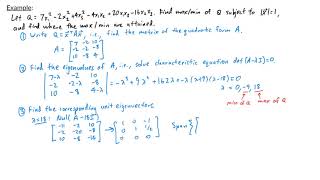 Example:
Let Q = 7x₁² - 2x₂² + 4x₃² - 4x₁x₂ + 20x₁x₃ - 16x₂x₃. Find max/min of Q subject to ‖x⃗‖=1,
and find where the max/min are attained.
① Write Q = x⃗ᵀAx⃗, i.e., find the matrix of the quadratic form A.
A = [ 7 -2 10
-2 -2 -8
10 -8 4 ]
② Find the eigenvalues of A, i.e., solve characteristic equation det(A-λI)=0.
| 7-λ -2 10
-2 -2-λ -8
10 -8 4-λ | = -λ³ + 9λ² + 162λ = -λ(λ+9)(λ-18) = 0
λ = 0, -9, 18
min of Q max of Q
③ Find the corresponding unit eigenvectors
λ=18: Null (A - 18I)
[ -11 -2 10
-2 -20 -8
10 -8 -14 ] → [ 1 0 -1
0 1 1/2
0 0 0 ] Span { [